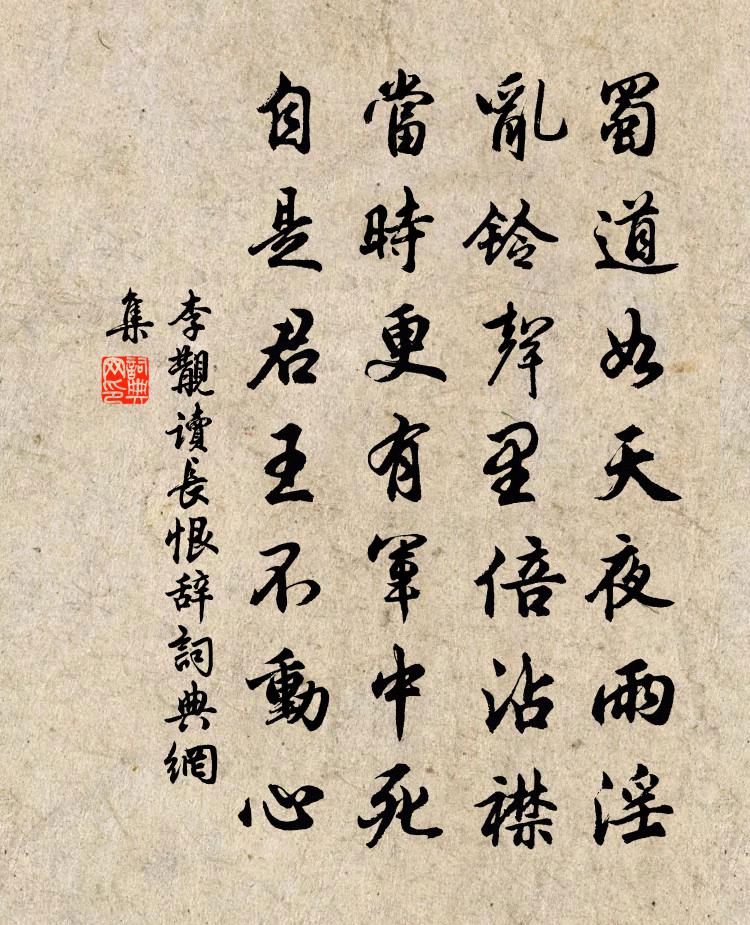 蜀道如天夜雨淫
亂鈴聲里倍沾襟
當時更有軍中死
自是君王不動心
李覯讀長恨辞詞典網
集
詞典
网印